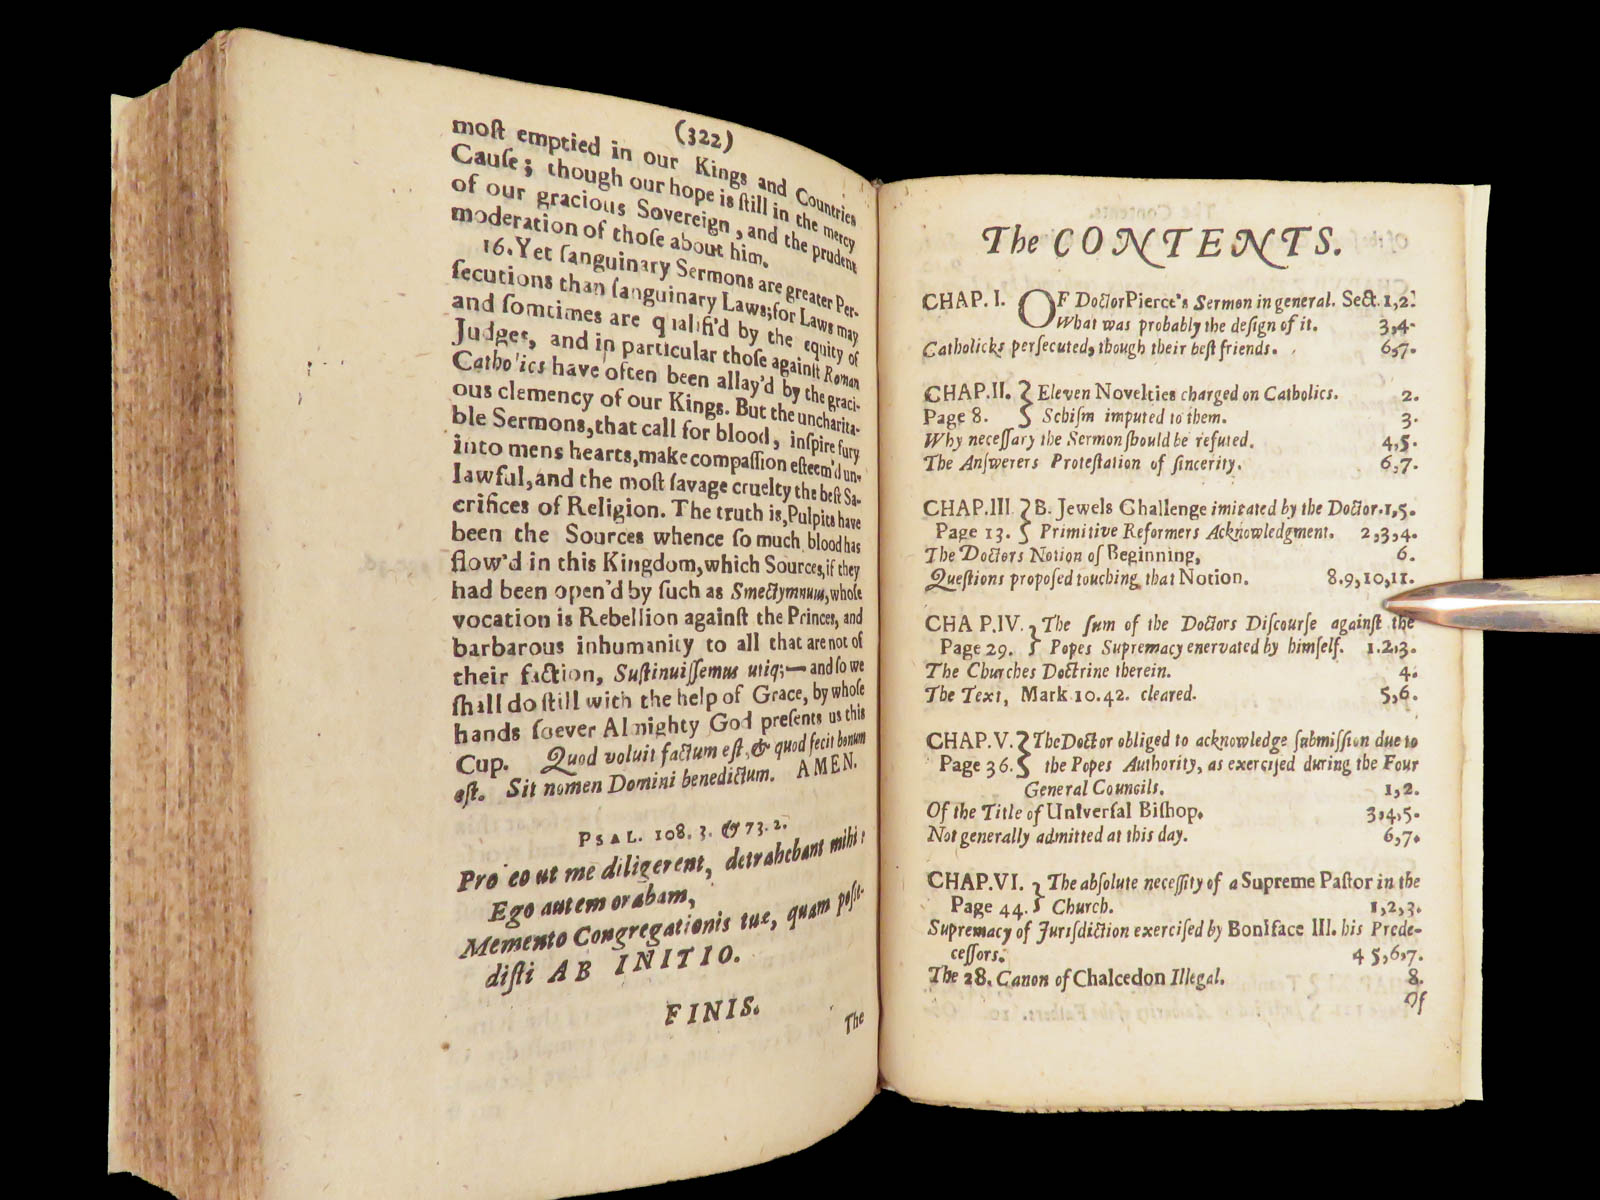 (322)
moſt emptied in our Kings and Countries
Cauſe; though our hope is ſtill in the mercy
of our gracious Sovereign, and the prudent
moderation of thoſe about him.
16. Yet ſanguinary Sermons are greater Per-
ſecutions than ſanguinary Laws; for Laws may
and ſomtimes are qualifi'd by the equity of
Judges, and in particular thoſe againſt Roman
Catholics have often been allay'd by the graci-
ous clemency of our Kings. But the uncharita-
ble Sermons, that call for blood, inſpire fury
into mens hearts, make compaſſion eſteem'd un-
lawful, and the moſt ſavage cruelty the beſt Sa-
crifices of Religion. The truth is, Pulpits have
been the Sources whence ſo much blood has
flow'd in this Kingdom, which Sources, if they
had been open'd by ſuch as Smectymnuus, whoſe
vocation is Rebellion againſt the Princes, and
barbarous inhumanity to all that are not of
their faction, Suſtinuiſſemus utiq;— and ſo we
ſhall do ſtill with the help of Grace, by whoſe
hands ſoever Almighty God preſents us this
Cup. Quod voluit factum eſt, & quod fecit bonum
eſt. Sit nomen Domini benedictum. AMEN.
PSAL. 108. 3. & 73. 2.
Pro eo ut me diligerent, detrahebant mihi:
Ego autem orabam,
Memento Congregationis tuæ, quam poſſe-
diſti AB INITIO.
FINIS.
The
The CONTENTS.
CHAP. I. OF Doctor Pierce's Sermon in general. Sect. 1,2.
What was probably the deſign of it. 3,4.
Catholicks perſecuted, though their beſt friends. 6,7.
CHAP. II. } Eleven Novelties charged on Catholics. 2.
Page 8. } Schiſm imputed to them. 3.
Why neceſſary the Sermon ſhould be refuted. 4,5.
The Anſwerers Proteſtation of ſincerity. 6,7.
CHAP. III } B. Jewels Challenge imitated by the Doctor. 1,5.
Page 13. } Primitive Reformers Acknowledgment. 2,3,4.
The Doctors Notion of Beginning, 6.
Queſtions propoſed touching that Notion. 8.9,10,11.
CHA P.IV. } The ſum of the Doctors Diſcourſe againſt the
Page 29. } Popes Supremacy enervated by himſelf. 1.2,3.
The Churches Doctrine therein. 4.
The Text, Mark 10.42. cleared. 5,6.
CHAP. V. } The Doctor obliged to acknowledge ſubmiſſion due to
Page 36. } the Popes Authority, as exerciſed during the Four
General Councils. 1,2.
Of the Title of Univerſal Biſhop. 3,4,5.
Not generally admitted at this day. 6,7.
CHAP. VI. } The abſolute neceſſity of a Supreme Paſtor in the
Page 44. } Church. 1,2,3.
Supremacy of Juriſdiction exerciſed by Boniface III. his Prede-
ceſſors. 4 5,6,7.
The 28. Canon of Chalcedon Illegal. 8.
Of